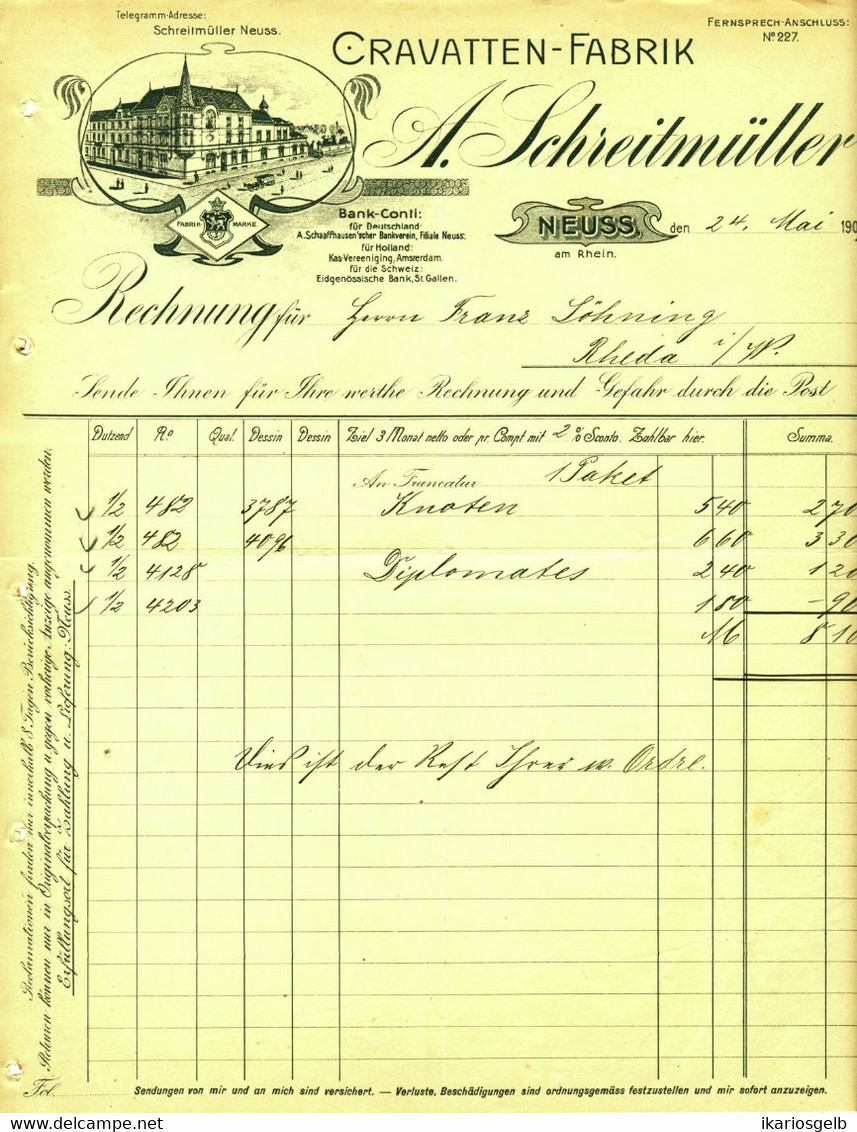 Telegramm-Adresse:
Schreitmüller Neuss.
FERNSPRECH-ANSCHLUSS:
No. 227.
CRAVATTEN-FABRIK
A. Schreitmüller
FABRIK MARKE
Bank-Conti:
für Deutschland:
A. Schaaffhausen'scher Bankverein, Filiale Neuss.
für Holland:
Kas-Vereeniging, Amsterdam.
für die Schweiz:
Eidgenössische Bank, St. Gallen.
NEUSS, den 24. Mai 190
am Rhein.
Rechnung für Herrn Franz Löhning
Rheda i/W.
Sende Ihnen für Ihre werthe Rechnung und Gefahr durch die Post
Dutzend No Qual. Dessin Dessin Ziel 3 Monat netto oder pr. Compt mit 2 % Sconto. Zahlbar hier. Summa.
An Francatur 1 Paket
1/2 482 3787 Knoten 540 270
1/2 482 4096 660 330
1/2 4128 Diplomates 240 120
1/2 4203 180 -90
M 810
Dies ist der Rest Ihrer w. Ordre.
Reclamationen finden nur innerhalb 8 Tagen Berücksichtigung.
Retouren können nur in Originalverpackung u. gegen vorherige Anzeige angenommen werden.
Erfüllungsort für Zahlung u. Lieferung: Neuss.
Fol.
Sendungen von mir und an mich sind versichert. — Verluste, Beschädigungen sind ordnungsgemäss festzustellen und mir sofort anzuzeigen.
www.delcampe.net
ikariosgelb